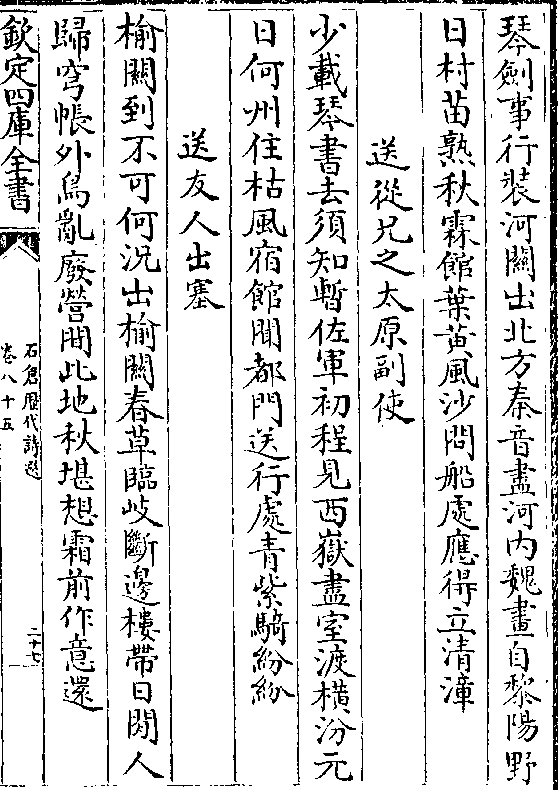 琴劍事行裝河關出北方秦音盡河内魏畫自黎陽野
日村苗熟秋霖館葉黃風沙問船處應得立清漳
送從兄之太原副使
少載琴書去須知暫佐軍初程見西嶽盡室渡横汾元
日何州住枯風宿館聞都門送行處青紫騎紛紛
送友人出塞
榆關到不可何況出榆關春草臨岐斷邊樓帶日閑人
歸穹帳外鳥亂廢營間此地秋堪想霜前作意還
欽定四庫全書
石倉歷代詩選
卷八十五
二十七